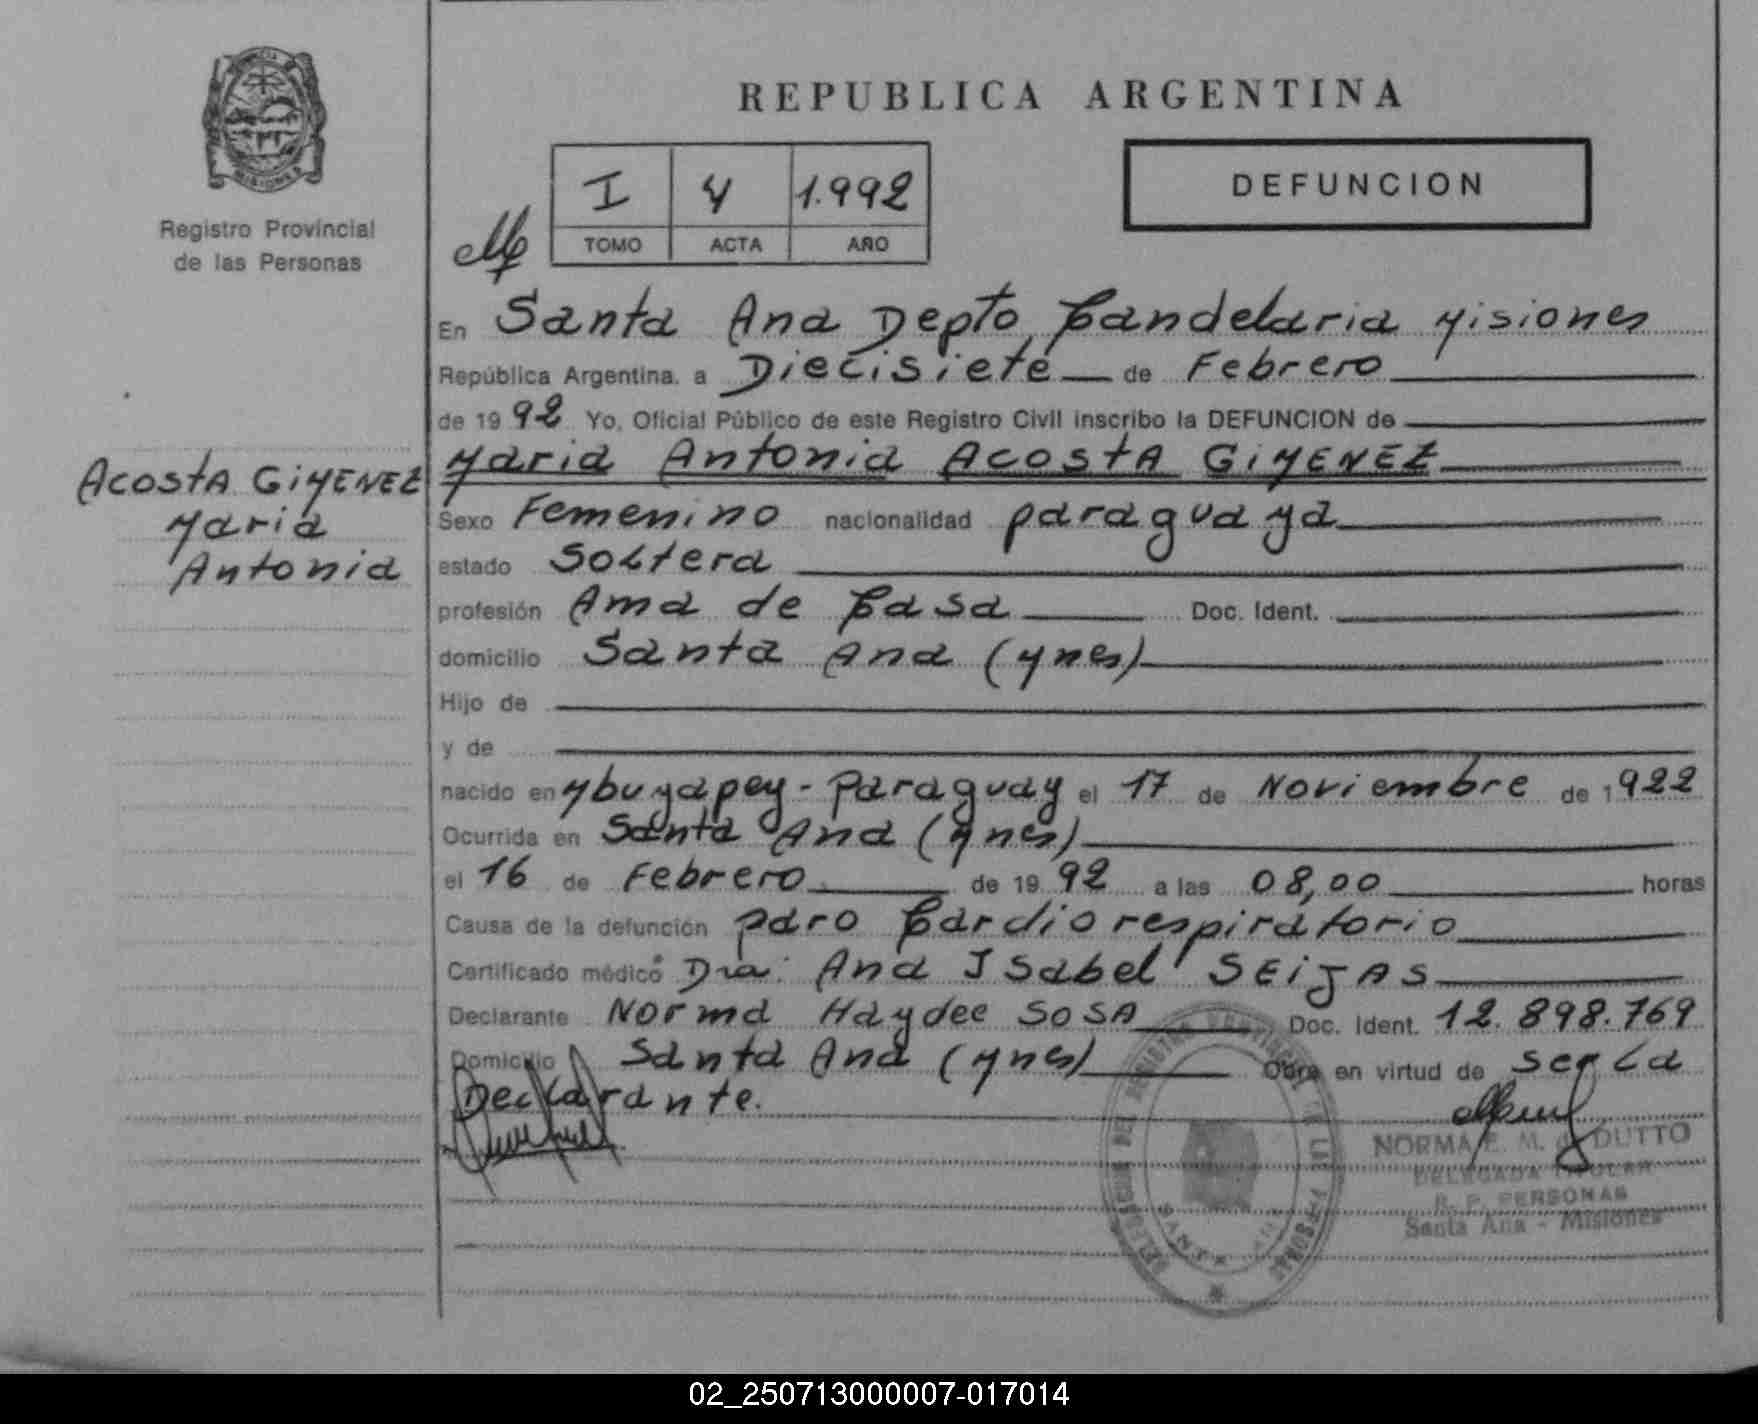 REPUBLICA ARGENTINA
MISIONES
Registro Provincial
de las Personas
I 4 1.992
TOMO ACTA AÑO
DEFUNCION
En Santa Ana Depto Candelaria Misiones
República Argentina, a Diecisiete de Febrero
de 1992 Yo, Oficial Público de este Registro Civil inscribo la DEFUNCION de
Maria Antonia Acosta GiMENEZ
Acosta GiMENEZ
Maria
Antonia
Sexo Femenino nacionalidad paraguaya
estado Soltera
profesión Ama de Casa Doc. Ident.
domicilio Santa Ana (Mnes)
Hijo de
y de
nacido en Ybuyapey - Paraguay el 17 de Noviembre de 1922
Ocurrida en Santa Ana (Mnes)
el 16 de Febrero de 1992 a las 08,00 horas
Causa de la defunción paro Cardio respiratorio
Certificado médico Dra: Ana Isabel SEiJAS
Declarante Norma Haydee SOSA Doc. Ident. 12.898.769
Domicilio Santa Ana (Mnes) Obra en virtud de ser La
Declarante.
NORMA E. M. de DUTTO
DELEGADA TITULAR
R. P. PERSONAS
Santa Ana - Misiones
DELEGACION DEL REGISTRO PROVINCIAL DE LAS PERSONAS
SANTA ANA
02_250713000007-017014